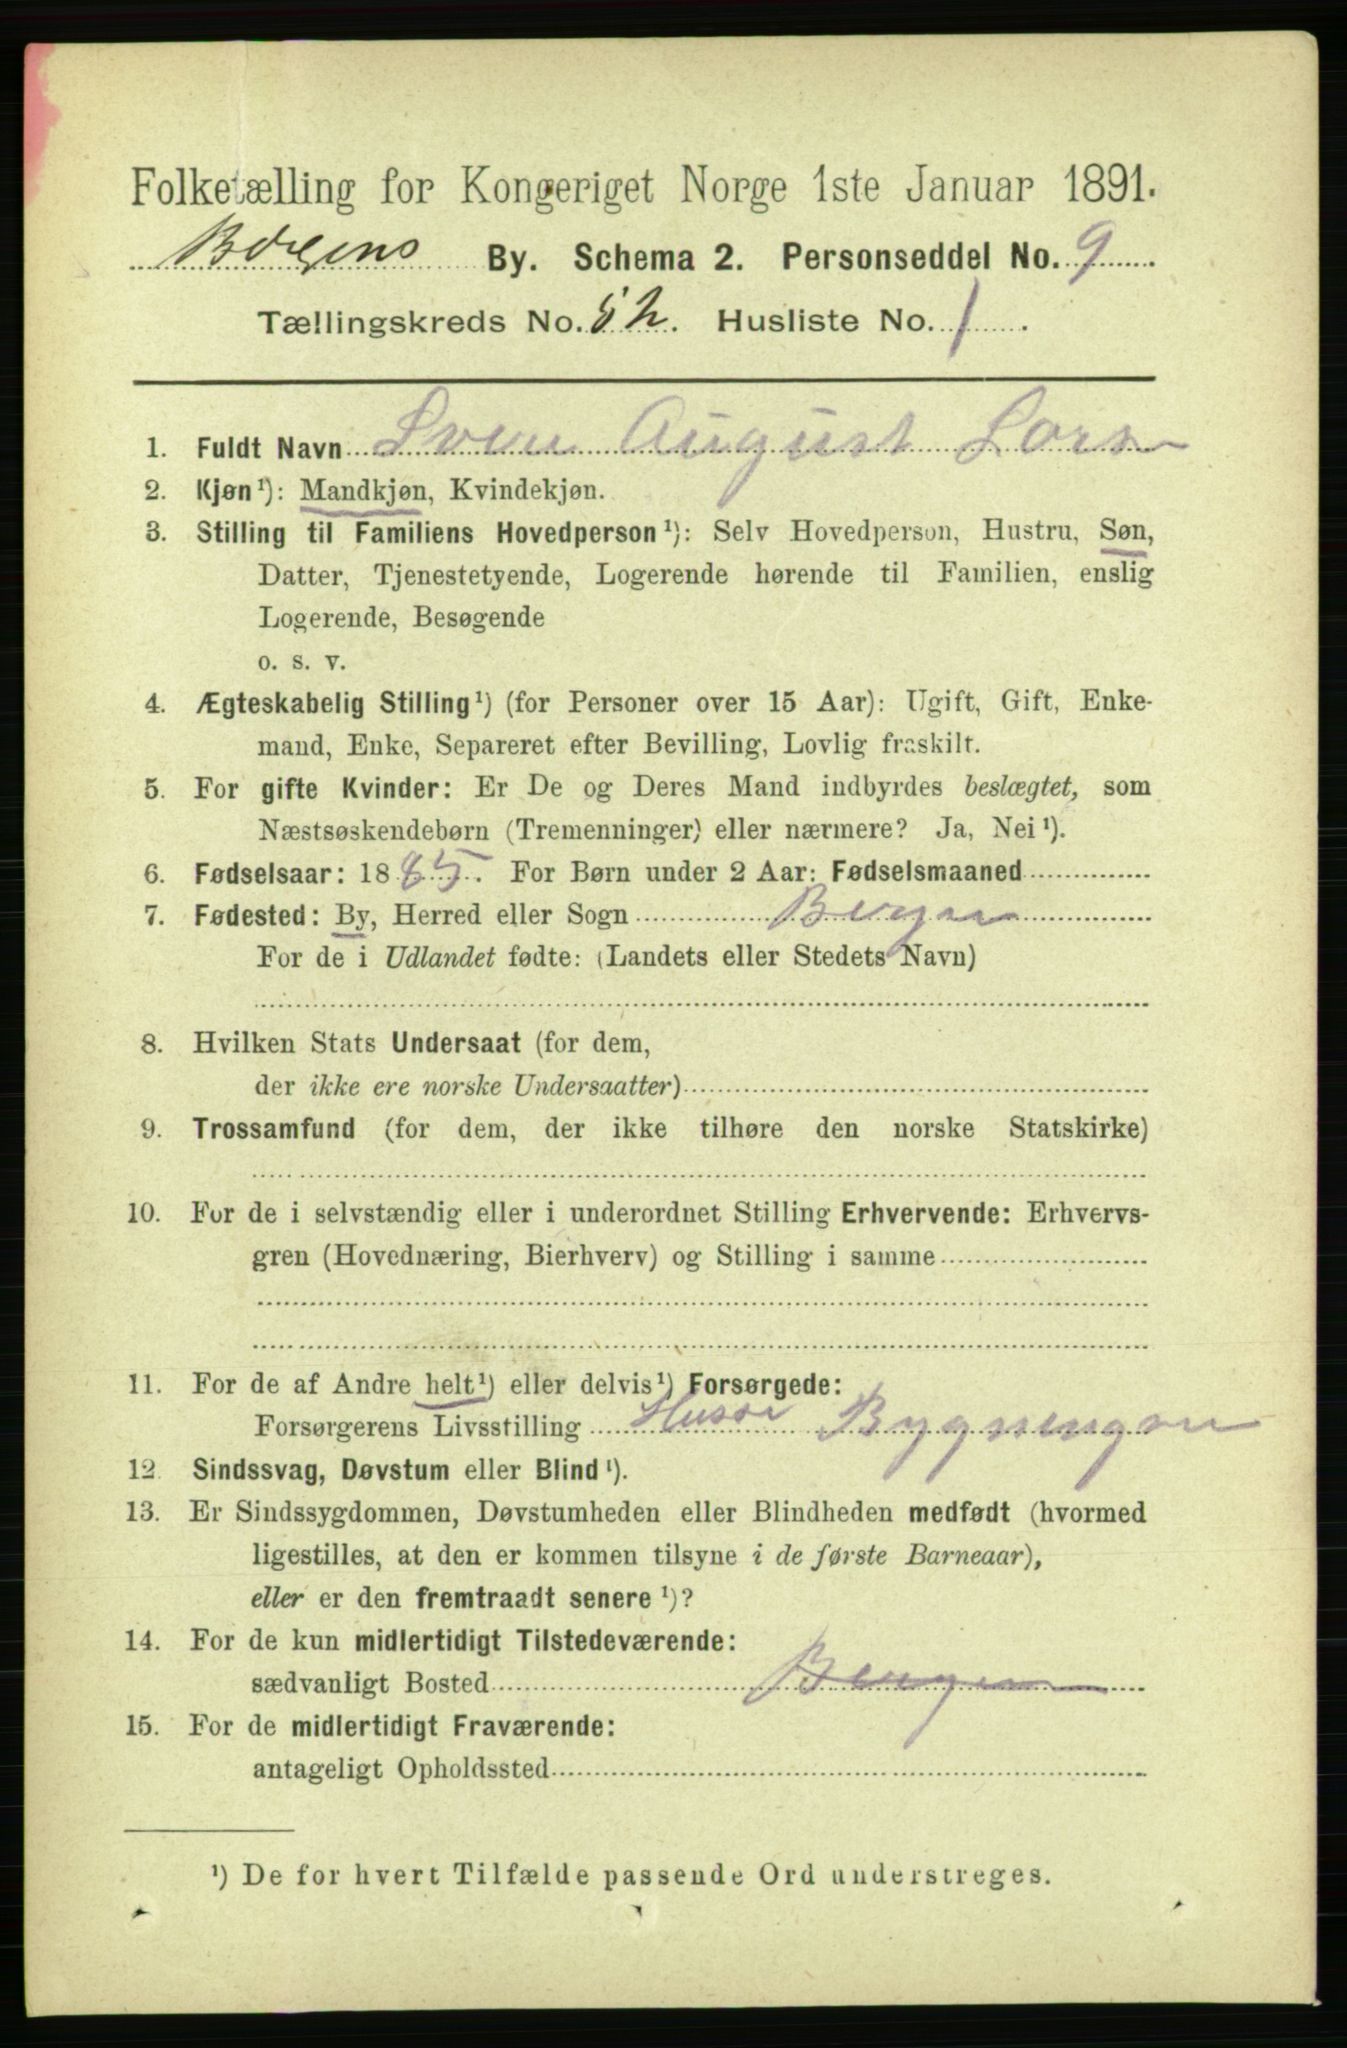 Folketælling for Kongeriget Norge 1ste Januar 1891.
Bergens By. Schema 2. Personseddel No. 9
Tællingskreds No. 52. Husliste No. 1.
1. Fuldt Navn Sven August Lars
2. Kjøn¹): Mandkjøn, Kvindekjøn.
3. Stilling til Familiens Hovedperson¹): Selv Hovedperson, Hustru, Søn,
Datter, Tjenestetyende, Logerende hørende til Familien, enslig
Logerende, Besøgende
o. s. v.
4. Ægteskabelig Stilling¹) (for Personer over 15 Aar): Ugift, Gift, Enke-
mand, Enke, Separeret efter Bevilling, Lovlig fraskilt.
5. For gifte Kvinder: Er De og Deres Mand indbyrdes beslægtet, som
Næstsøskendebørn (Tremenninger) eller nærmere? Ja, Nei¹).
6. Fødselsaar: 1885. For Børn under 2 Aar: Fødselsmaaned
7. Fødested: By, Herred eller Sogn Bergen
For de i Udlandet fødte: (Landets eller Stedets Navn)
8. Hvilken Stats Undersaat (for dem,
der ikke ere norske Undersaatter)
9. Trossamfund (for dem, der ikke tilhøre den norske Statskirke)
10. For de i selvstændig eller i underordnet Stilling Erhvervende: Erhvervs-
gren (Hovednæring, Bierhverv) og Stilling i samme
11. For de af Andre helt¹) eller delvis¹) Forsørgede:
Forsørgerens Livsstilling
12. Sindssvag, Døvstum eller Blind¹).
13. Er Sindssygdommen, Døvstumheden eller Blindheden medfødt (hvormed
ligestilles, at den er kommen tilsyne i de første Barneaar),
eller er den fremtraadt senere¹)?
14. For de kun midlertidigt Tilstedeværende:
sædvanligt Bosted Bergen
15. For de midlertidigt Fraværende:
antageligt Opholdssted
¹) De for hvert Tilfælde passende Ord understreges.